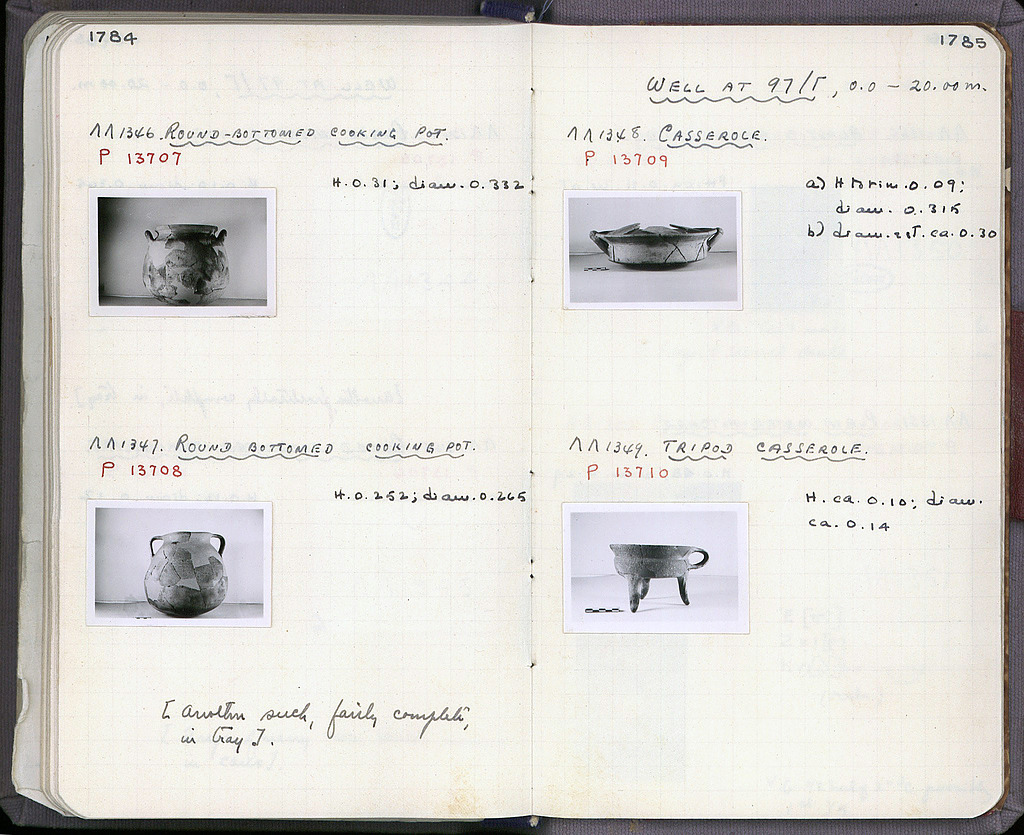 1784
ΛΛ1346. ROUND-BOTTOMED COOKING POT.
P 13707
H. 0.31; diam. 0.332
ΛΛ1347. ROUND BOTTOMED COOKING POT.
P 13708
H. 0.252; diam. 0.265
[Another such, fairly complete,
in tray].
1785
WELL AT 97/Γ, 0.0 - 20.00 m.
ΛΛ1348. CASSEROLE.
P 13709
a) H to rim. 0.09;
diam. 0.315
b) diam. est. ca. 0.30
ΛΛ1349. TRIPOD CASSEROLE.
P 13710
H. ca. 0.10; diam.
ca. 0.14